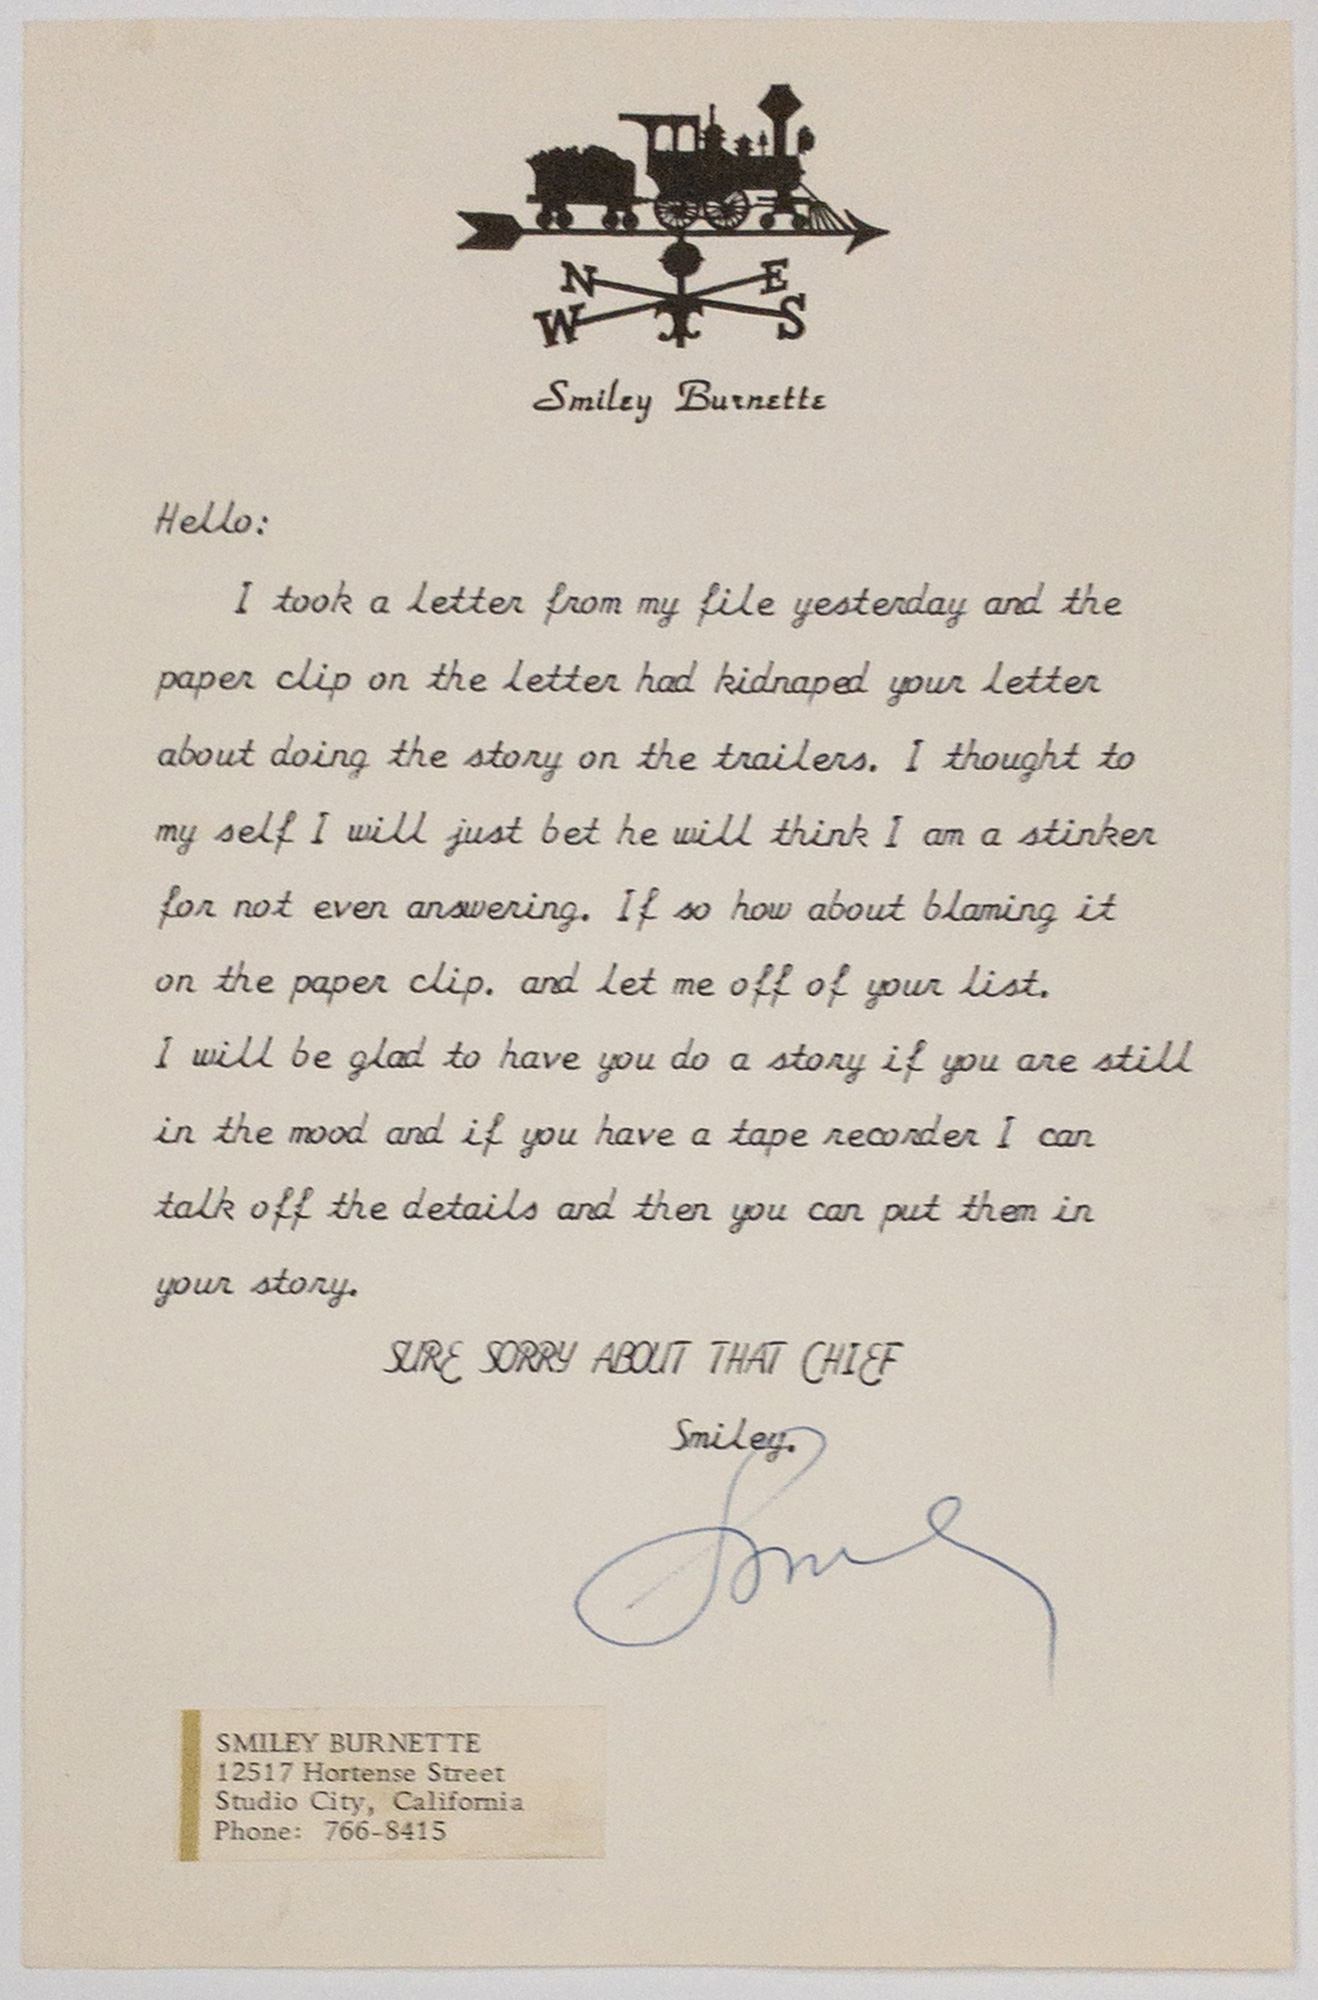 N E
W S
Smiley Burnette
Hello:
I took a letter from my file yesterday and the
paper clip on the letter had kidnaped your letter
about doing the story on the trailers. I thought to
my self I will just bet he will think I am a stinker
for not even answering. If so how about blaming it
on the paper clip. and let me off of your list.
I will be glad to have you do a story if you are still
in the mood and if you have a tape recorder I can
talk off the details and then you can put them in
your story.
SURE SORRY ABOUT THAT CHIEF
Smiley.
Smiley
SMILEY BURNETTE
12517 Hortense Street
Studio City, California
Phone: 766-8415